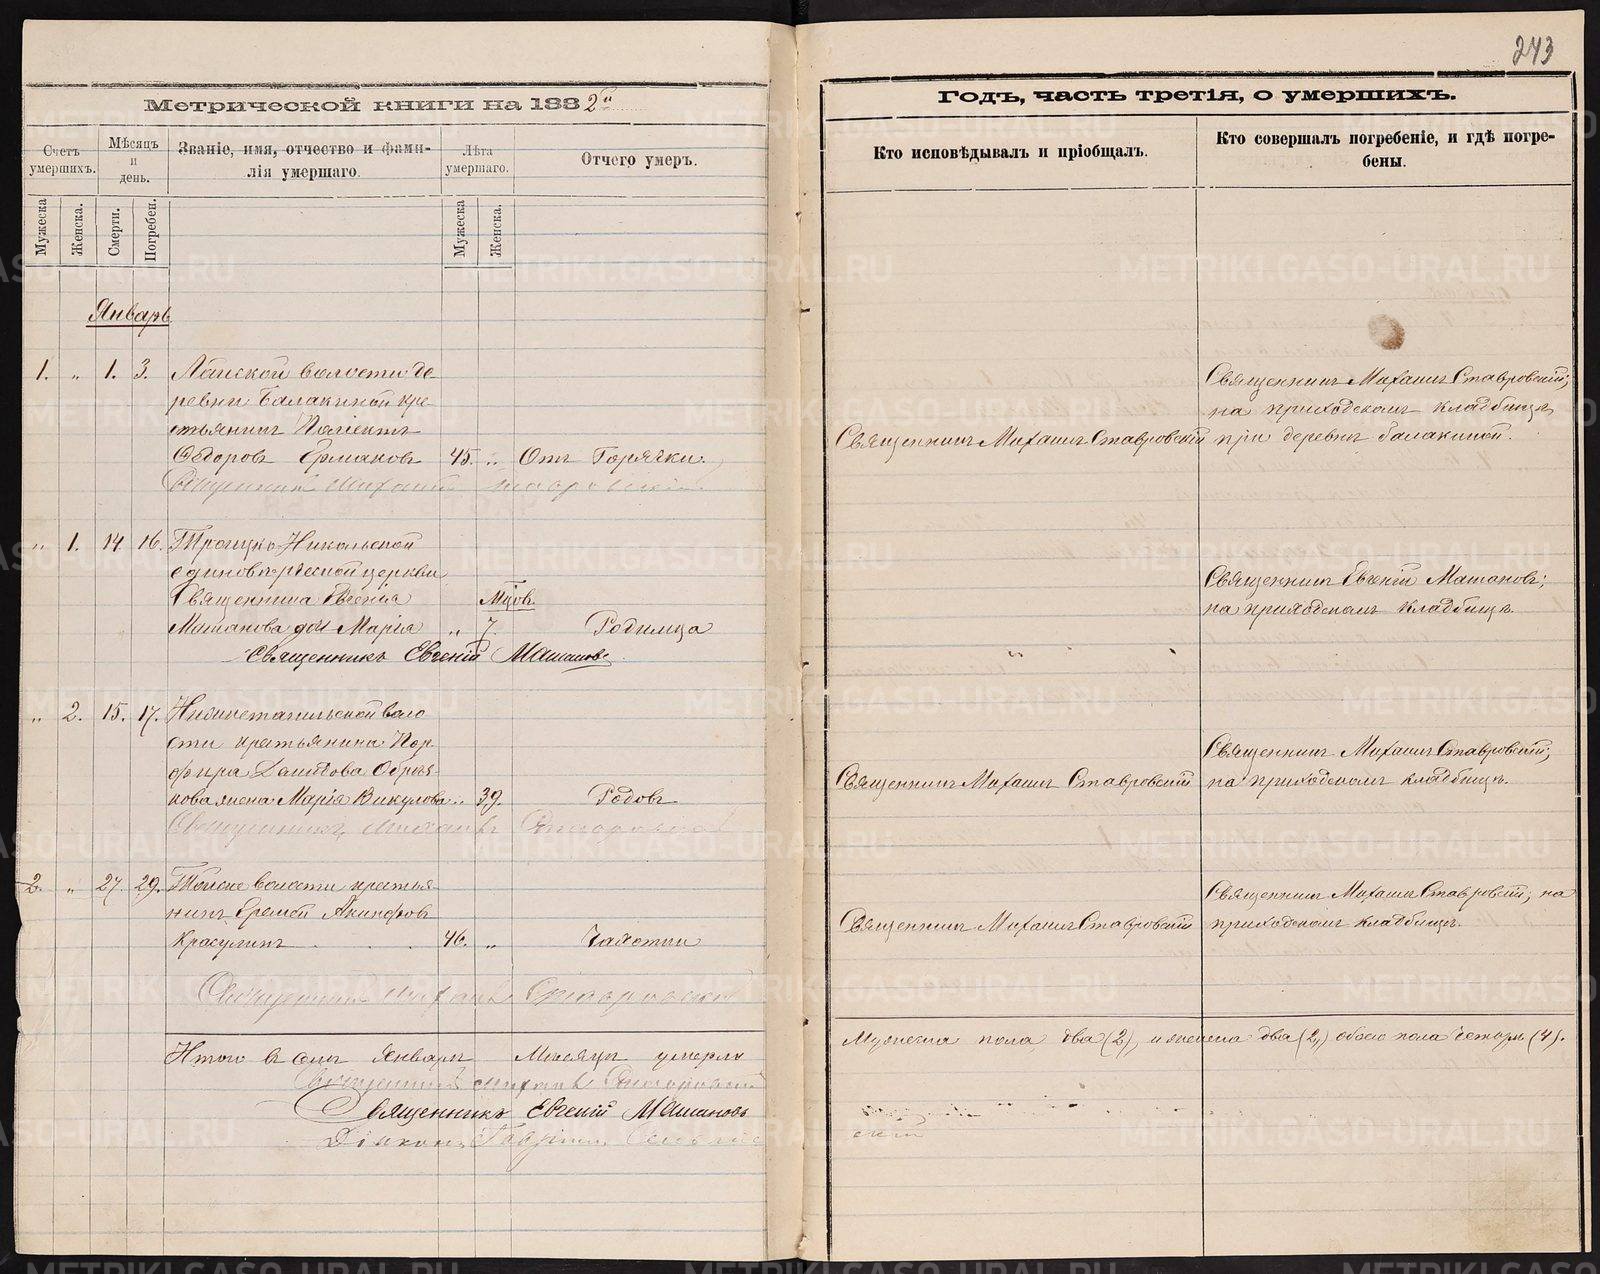 243
Метрической книги на 1882й
Годъ, часть третія, о умершихъ.
Счетъ умершихъ.
Мѣсяцъ и день.
Званіе, имя, отчество и фами-
лія умершаго.
Лѣта умершаго.
Отчего умеръ.
Кто исповѣдывалъ и пріобщалъ.
Кто совершалъ погребеніе, и гдѣ погре-
бены.
Мужеска
Женска.
Смерти.
Погребен.
Мужеска
Женска.
Январь
1. „ 1. 3. Лайской волости де-
ревни Балакиной кре-
стьянинъ
Ѳедоровъ Ермаковъ 45. „ Отъ Горячки.
Священникъ Михаилъ Ставровскій
Священникъ Михаилъ Ставровскій
Священникъ Михаилъ Ставровскій;
на приходскомъ кладбищѣ
при деревнѣ Балакиной.
„ 1. 14. 16. Троицко-Никольской
единовѣрческой церкви
Священника Евгенія
Машанова дочь Марія „ 7. Мцовъ. Родимца
Священникъ Евгеній Машановъ
Священникъ Евгеній Машановъ;
на приходскомъ кладбищѣ.
„ 2. 15. 17. Нижнетагильской воло
сти крестьянина Пор-
фира
жена Марія Викулова „ 39. Родовъ
Священникъ Михаилъ Ставровскій
Священникъ Михаилъ Ставровскій
Священникъ Михаилъ Ставровскій;
на приходскомъ кладбищѣ.
2. „ 27. 29. Тойже волости крестья-
нинъ Еремей Акинфовъ
Красулинъ . . . 46. „ Чахотки
Священникъ Михаилъ Ставровскій
Священникъ Михаилъ Ставровскій
Священникъ Михаилъ Ставровскій; на
приходскомъ кладбищѣ.
Итого въ семъ Январѣ Мѣсяцѣ умерло
Мужеска пола два (2), и женска два (2,) обоего пола четыре (4).
Священникъ Михаилъ Ставровскій
Священникъ Евгеній Машановъ
Діаконъ
METRIKI.GASO-URAL.RU